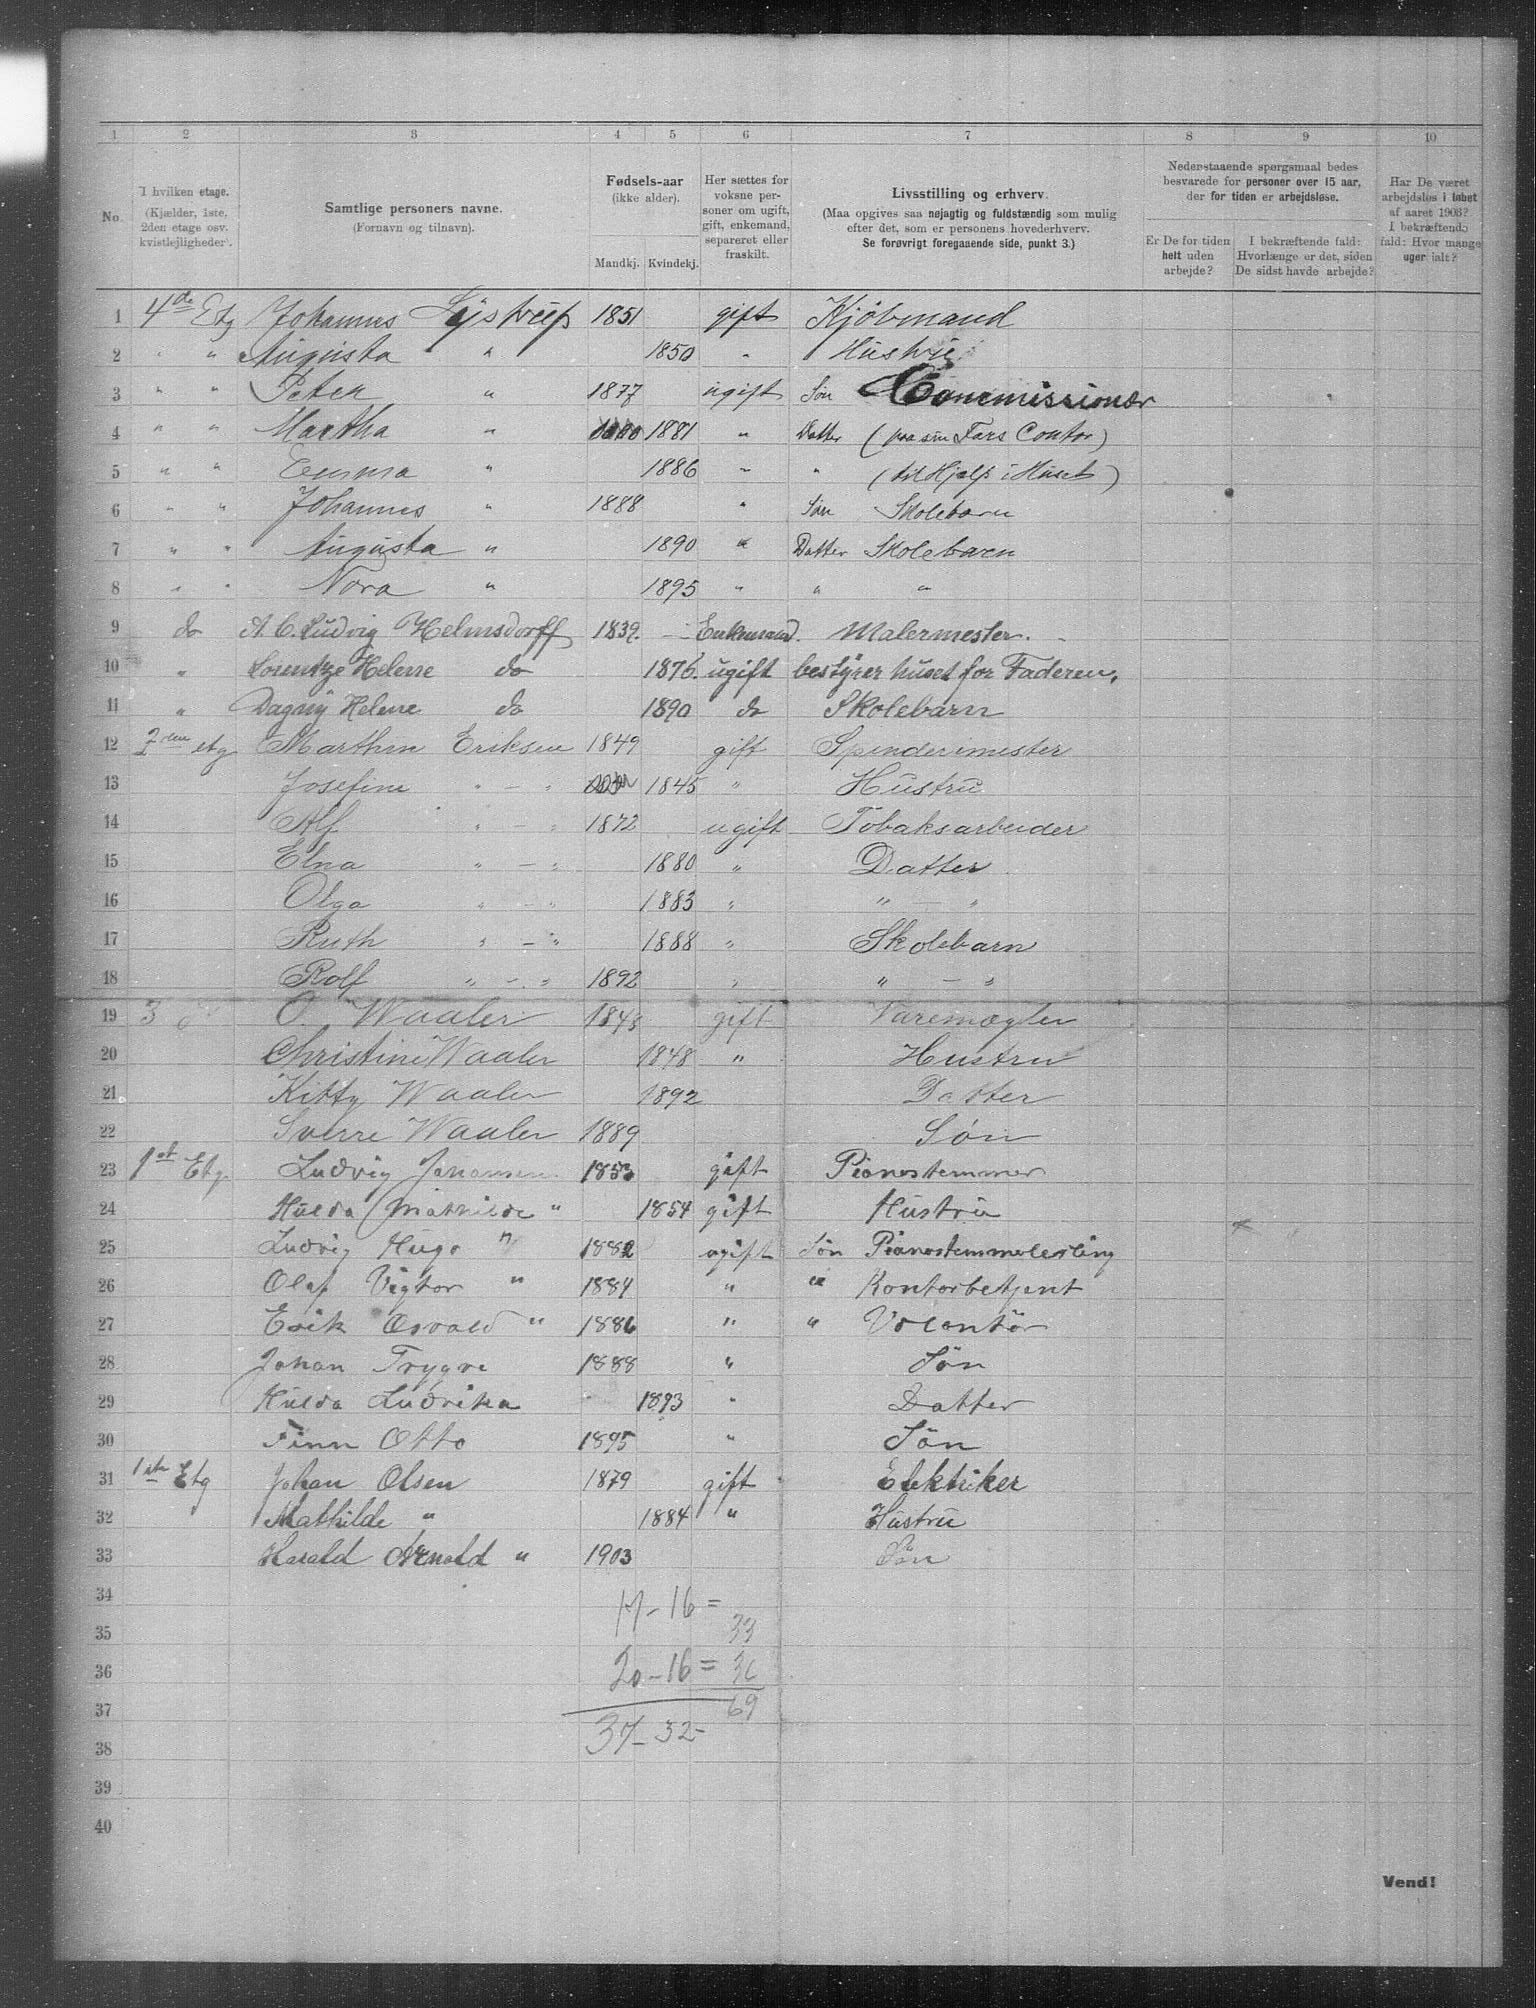 1 2 3 4 5 6 7 8 9 10
No.
I hvilken etage. (Kjælder, 1ste, 2den etage osv. kvistlejligheder).
Samtlige personers navne. (Fornavn og tilnavn).
Fødsels-aar (ikke alder). Mandkj. Kvindekj.
Her sættes for voksne personer om ugift, gift, enkemand, separeret eller fraskilt.
Livsstilling og erhverv. (Maa opgives saa nøjagtig og fuldstændig som mulig efter det, som er personens hovederhverv. Se forøvrigt foregaaende side, punkt 3.)
Nedenstaaende spørgsmaal bedes besvarede for personer over 15 aar, der for tiden er arbejdsløse.
Er De for tiden helt uden arbejde?
I bekræftende fald: Hvorlænge er det, siden De sidst havde arbejde?
Har De været arbejdsløs i løbet af aaret 1903? I bekræftende fald: Hvor mange uger ialt?
1 4de Etg Johannes Lystrup 1851 gift Kjöbmand
2 " " Augusta " 1850 " Hustru
3 " " Peter " 1877 ugift Søn Commissionær
4 " " Martha " 1881 " Datter (paa sin Fars Contor)
5 " " Emma " 1886 " " (til Hjelp i Huset)
6 " " Johannes " 1888 " Søn Skolebarn
7 " " Augusta " 1890 " Datter Skolebarn
8 " " Nora " 1895 " " "
9 do A. C. Ludvig Helmsdorff 1839. Enkemand. Malermester.
10 " Lorentze Helene do 1876. ugift bestyrer huset for Faderen.
11 " Dagny Helene do 1890 do Skolebarn
12 2den etg Marthin Eriksen 1849 gift Spinderimester
13 Josefine " — " 1845 " Hustru
14 Alf " — " 1872 ugift Tobaksarbeider
15 Elna " — " 1880 " Datter
16 Olga " — " 1883 " " — "
17 Ruth " — " 1888 " Skolebarn
18 Rolf " — " 1892 " " — "
19 3 O. Waaler gift Varemægler
20 Christine Waaler 1848 " Hustru
21 Kitty Waaler 1892 Datter
22 Sverre Waaler 1889 Søn
23 1st Etg. Ludvig Johansen 1853 gift Pianostemmer
24 Hulda Mathilde " 1854 gift Hustru
25 Ludvig Hugo " 1882 ugift Søn Pianostemmelerling
26 Olaf Vigtor " 1884 " " Kontorbetjent
27 Erik Osvald " 1886 " " Volontör
28 Johan Trygve 1888 " Søn
29 Hulda Ludvika 1893 " Datter
30 Finn Otto 1895 " Søn
31 1ste Etg Johan Olsen 1879 gift Elektriker
32 Mathilde " 1884 " Hustru
33 Harald Arnold " 1903 Søn
34 17-16 =
35 33
36 20-16 = 36
37 69
38 37-32-
39
40
Vend!